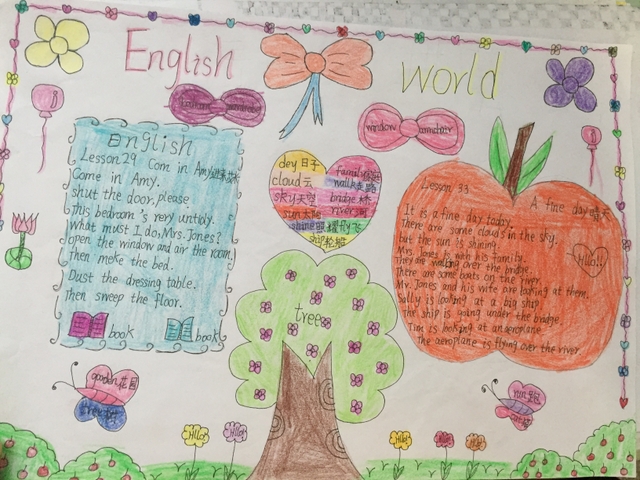 English
world
window
armchair
English
Lesson 29 Com in Amy
Come in Amy.
shut the door, please.
This bedroom 's very untidy.
what must I do, Mrs. Jones?
open the window and air the room,
Then meke the bed.
Dust the dressing table.
Then sweep the floor.
book
book
dey 日子
cloud 云
sky 天空
sun 太阳
shine
family
walk 走路
bridge 桥
river 河
飞
轮船
tree
Lesson 33
A fine day 晴天
It is a fine day today.
There are some clouds in the sky.
but the sun is shining.
Mrs. Jones is with his family.
They are walking over the bridge.
There are some boats on the river.
Mr. Jones and his wife are looking at them.
Sally is looking at a big ship
The ship is going under the bridge.
Tim is looking at an aeroplane.
The aeroplane is flying over the river.
Hillo!!
gooden 花园
run 跑
Hillo!
Hillo!
Hillo!